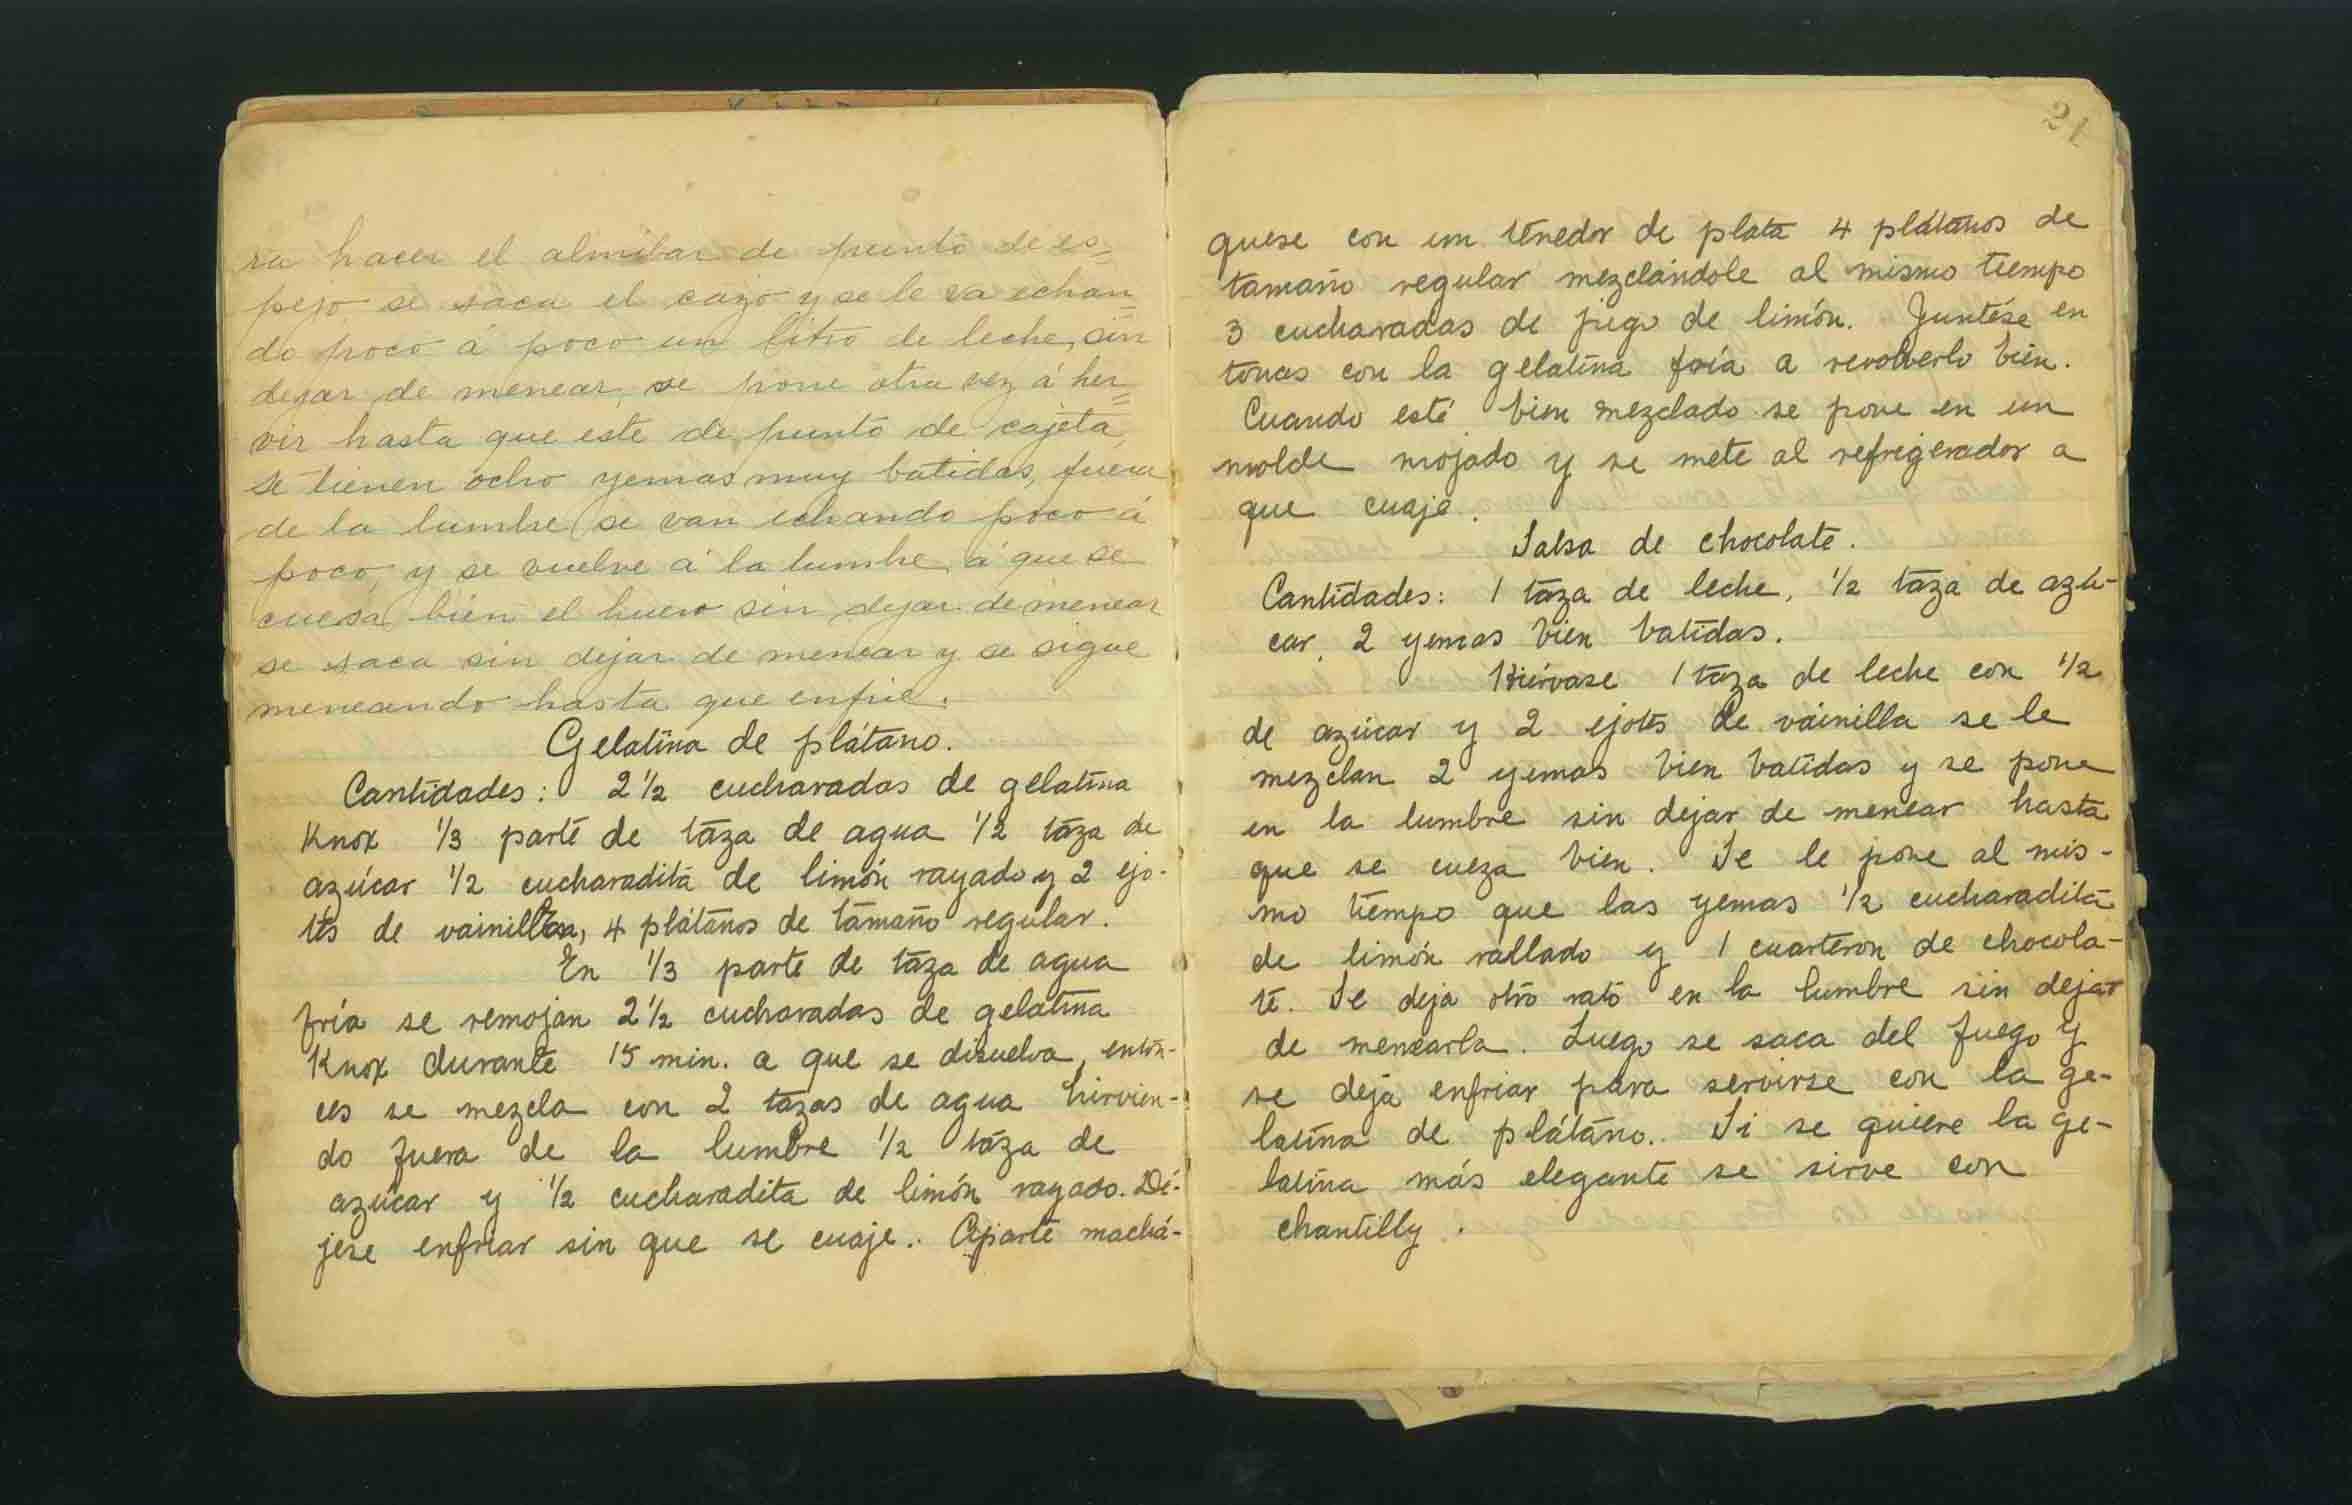 ra hacer el almibar de punto de es=
pejo se saca el cazo y se le va echan=
do poco á poco un litro de leche, sin
dejar de menear, se pone otra vez á her=
vir hasta que este de punto de cajeta,
se tienen ocho yemas muy batidas, fuera
de la lumbre se van echando poco á
poco, y se vuelve á la lumbre, á que se
cuesa bien el huevo sin dejar de menear
se saca sin dejar de menear y se sigue
meneando hasta que enfrie.
Gelatina de plátano.
Cantidades: 2 1/2 cucharadas de gelatina
Knox 1/3 parte de taza de agua 1/2 taza de
azúcar 1/2 cucharadita de limón rayado y 2 ejo-
tes de vainilla, 4 plátanos de tamaño regular.
En 1/3 parte de taza de agua
fría se remojan 2 1/2 cucharadas de gelatina
Knox durante 15 min. a que se disuelva, entón-
ces se mezcla con 2 tazas de agua hirvien-
do fuera de la lumbre 1/2 taza de
azúcar y 1/2 cucharadita de limón rayado. Dé-
jese enfriar sin que se cuaje. Aparte machá-
21
quese con un tenedor de plata 4 plátanos de
tamaño regular mezclándole al mismo tiempo
3 cucharadas de jugo de limón. Juntése en
tonces con la gelatina fría a revolverlo bien.
Cuando esté bien mezclado se pone en un
molde mojado y se mete al refrigerador a
que cuaje.
Salsa de chocolate.
Cantidades: 1 taza de leche, 1/2 taza de azú-
car, 2 yemas bien batidas.
Hiérvase 1 taza de leche con 1/2
de azúcar y 2 ejotes de vainilla se le
mezclan 2 yemas bien batidas y se pone
en la lumbre sin dejar de menear hasta
que se cueza bien. Se le pone al mis-
mo tiempo que las yemas 1/2 cucharadita
de limón rallado y 1 cuarteron de chocola-
te. Se deja otro rato en la lumbre sin dejar
de menearla. Luego se saca del fuego y
se deja enfriar para servirse con la ge-
latina de plátano. Si se quiere la ge-
latina más elegante se sirve con
chantilly.